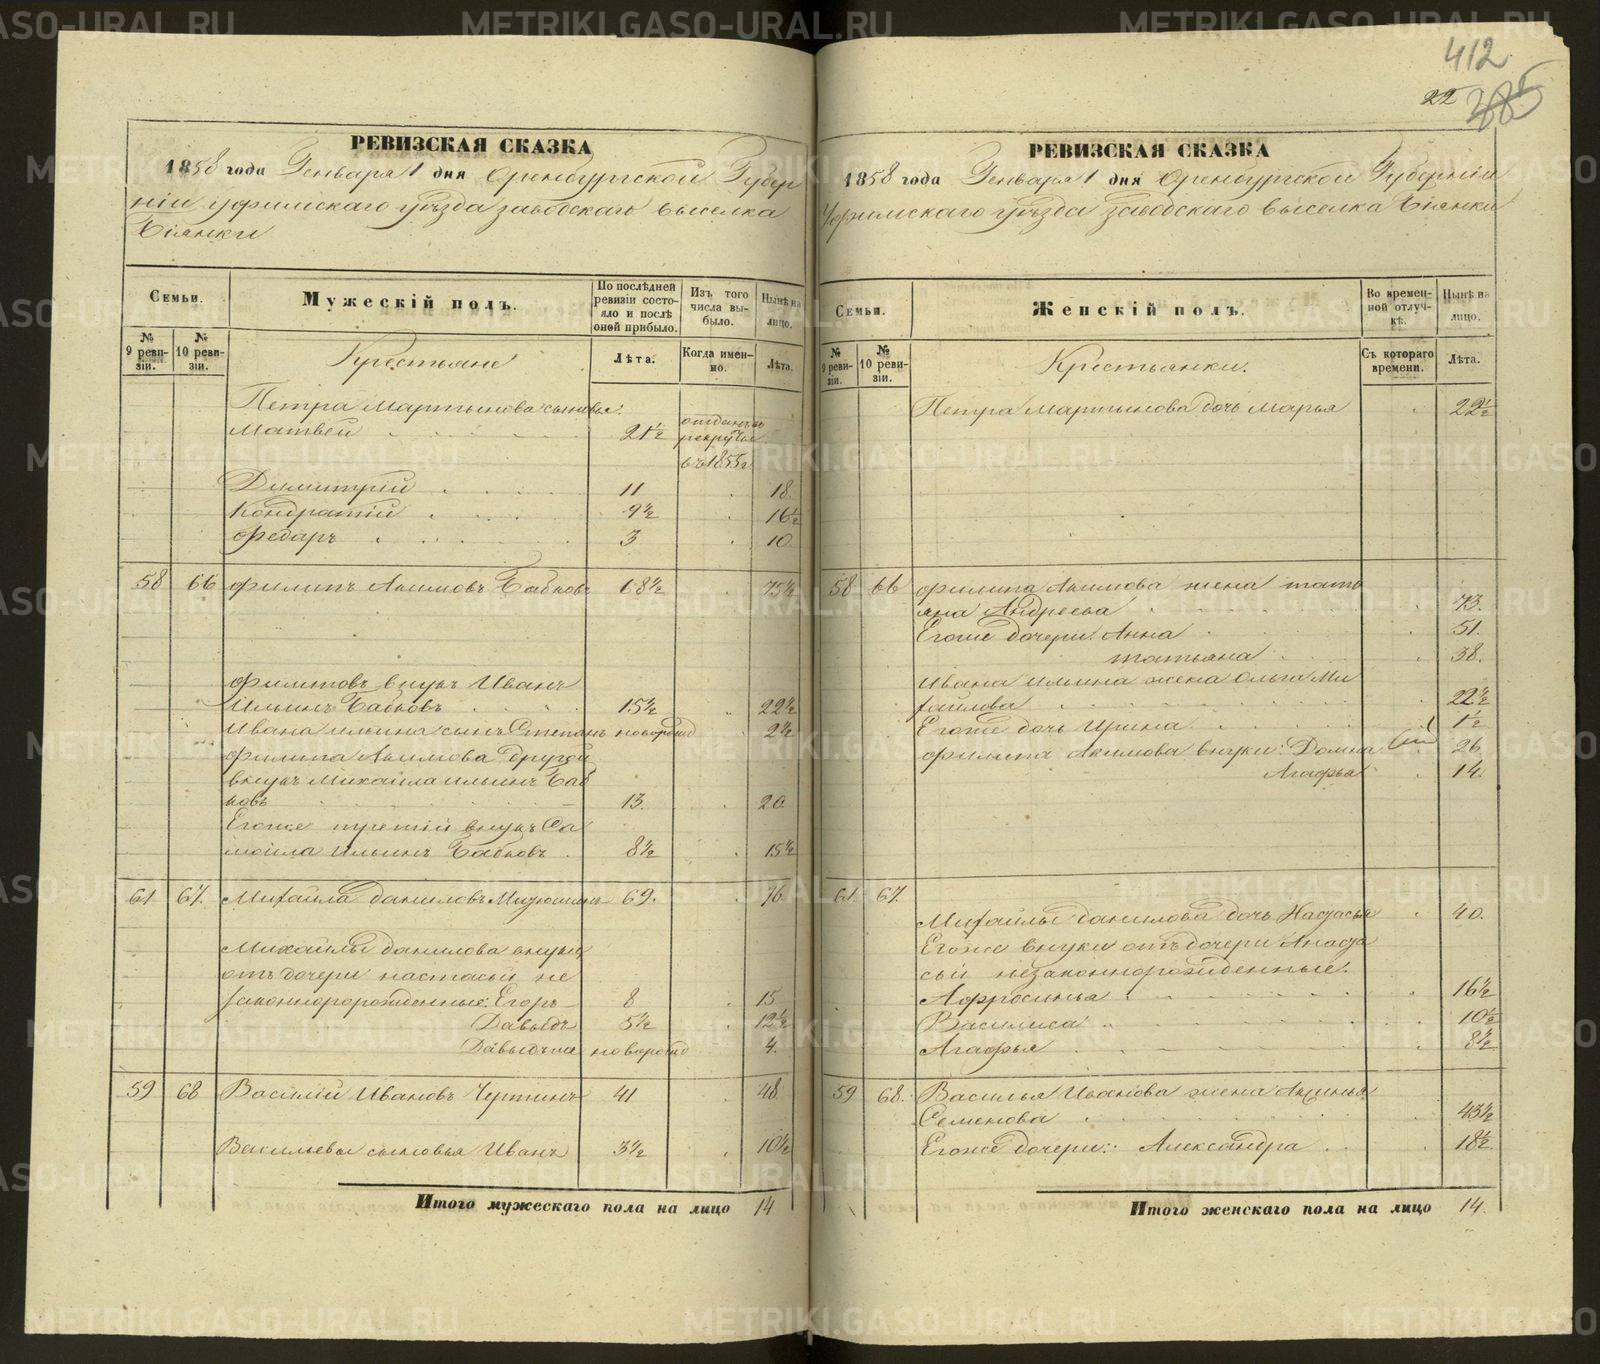 412
22 385
РЕВИЗСКАЯ СКАЗКА
1858 года Генваря 1 дня Оренбургской Губер
ніи уфимскаго уѣзда заводскаго выселка
Біянки
Семьи.
№ 9 ревизіи.
№ 10 ревизіи.
Мужескій полъ.
По послѣдней ревизіи состояло и послѣ оной прибыло.
Изъ того числа выбыло.
Нынѣ на лицо.
Лѣта.
Когда именно.
Лѣта.
Крестьяне
Петра Мартынова сыновья:
Матвей 21½ отданъ въ рекруты въ 1855г
Димитрій 11 18
Кондратій 9½ 16½
Федаръ 3 10
58 66 Филипъ Акимовъ Бабковъ 68½ 75½
Филиповъ внукъ Иванъ
Ильинъ Бабковъ 15½ 22½
Ивана ильина сынъ Степанъ новорожд 2½
Филипа Акимова другой
внукъ Михайла ильинъ Баб
ковъ 13 20
Егоже третій внукъ Са
мойла Ильинъ Бабковъ 8½ 15½
61 67 Михайла Даниловъ 69 76
Михайлы данилова внуки
отъ дочери настасьи не
законноророжденные: Егоръ 8 15
Давыдъ 5½ 12½
новорожд 4
59 68 Василій Ивановъ 41 48
Васильевы сыновья Иванъ 3½ 10½
Итого мужескаго пола на лицо 14
РЕВИЗСКАЯ СКАЗКА
1858 года Генваря 1 дня Оренбургской Губерніи
Уфимскаго уѣзда заводскаго выселка Біянки
Семьи.
№ 9 ревизіи.
№ 10 ревизіи.
Женскій полъ.
Во временной отлучкѣ.
Нынѣ на лицо.
Съ котораго времени.
Лѣта.
Крестьянки.
Петра Мартынова дочь Марья 22½
58 66 Филипа Акимова жена тать
яна Андреева 73
Егоже дочери: Анна 51
татьяна 38
Ивана ильина жена Ольга Ми
хайлова 22½
Егоже дочь Ирина 1½
Филипа Акимова внуки: Домна 26
Агафья 14
61 67
Михайлы данилова дочь Настасья 40
Егоже внуки отъ дочери Анаста
сьи незаконнорожденные:
Афросинья 16½
Василиса 10½
Агафья 8½
59 68 Василья Иванова жена Аксинья
Семенова 43½
Егоже дочери: Александра 18½
Итого женскаго пола на лицо 14
METRIKI.GASO-URAL.RU